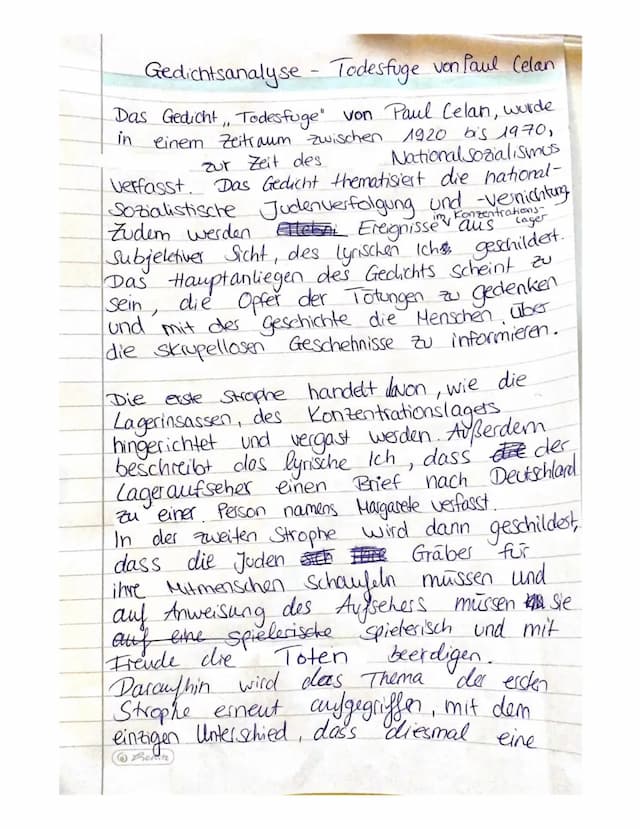 Gedichtsanalyse - Todesfuge von Paul Celan
Das Gedicht „Todesfuge" von Paul Celan, wurde
in einem Zeitraum zwischen 1920 bis 1970,
zur Zeit des Nationalsozialismus
verfasst. Das Gedicht thematisiert die national-
sozialistische Judenverfolgung und -vernichtung
Zudem werden Ereignisse im Konzentrations-
lager aus
subjektiver Sicht, des lyrischen Ichs geschildert.
Das Hauptanliegen des Gedichts scheint zu
sein, die Opfer der Tötungen zu gedenken
und mit des Geschichte die Menschen über
die skrupellosen Geschehnisse zu informieren.
Die erste Strophe handelt davon, wie die
Lagerinsassen, des Konzentrationslagers
hingerichtet und vergast werden. Außerdem
beschreibt das lyrische Ich, dass der
Lageraufseher einen Brief nach Deutschland
zu einer Person namens Margarete verfasst.
In der zweiten Strophe wird dann geschildert,
dass die Juden Gräber für
ihre Mitmenschen schaufeln müssen und
auf Anweisung des Aufsehers müssen sie
auf eine spielerische spielerisch und mit
Freude die Toten beerdigen.
Daraufhin wird das Thema der ersten
Strophe erneut aufgegriffen, mit dem
einzigen Unterschied, dass diesmal eine